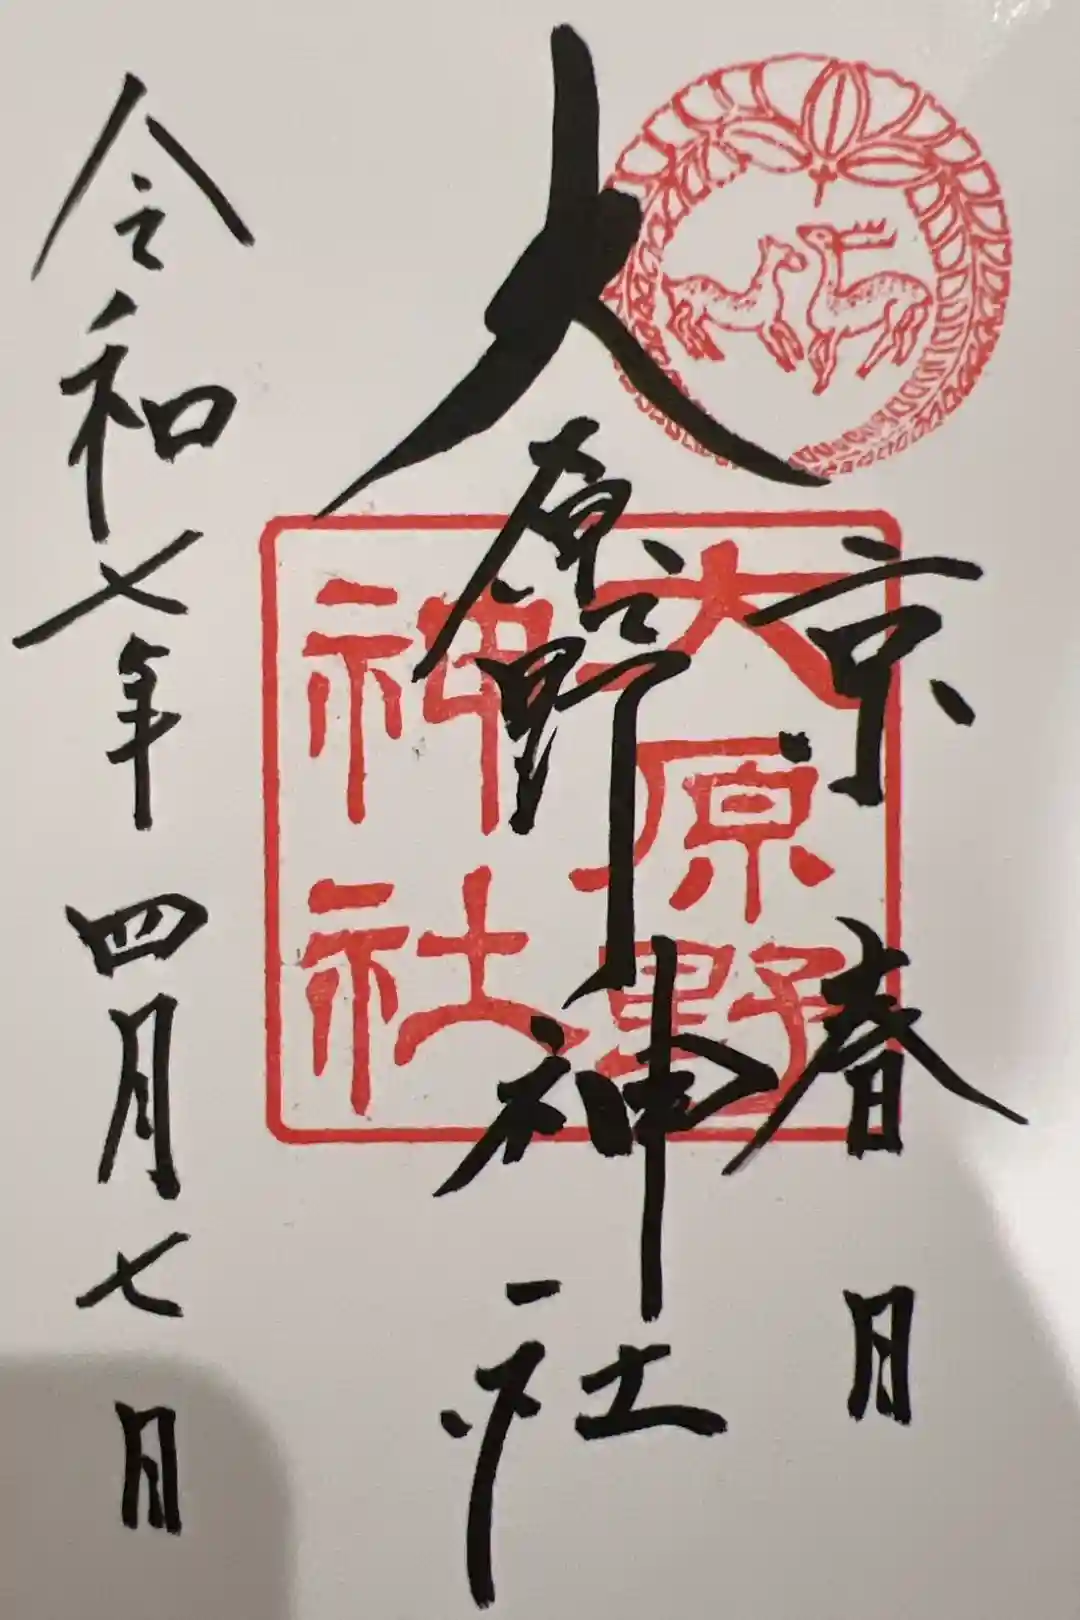 京春日
大原野神社
大原野
神社
令和七年四月七日